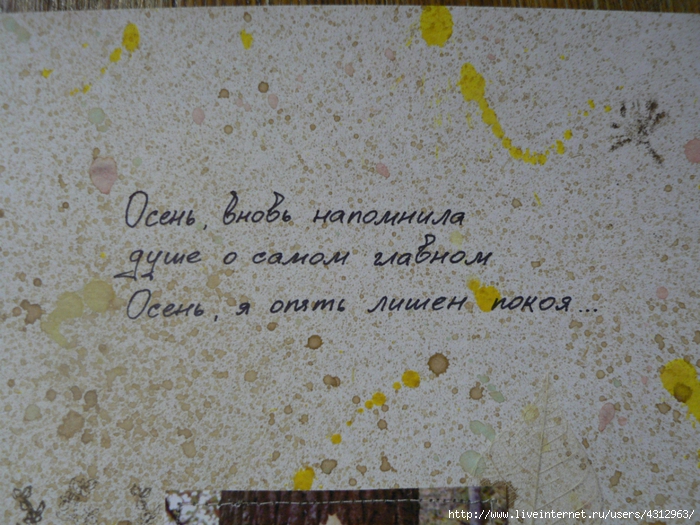 Осень, вновь напомнила
душе о самом главном
Осень, я опять лишен покоя...
http://www.liveinternet.ru/users/4312963/